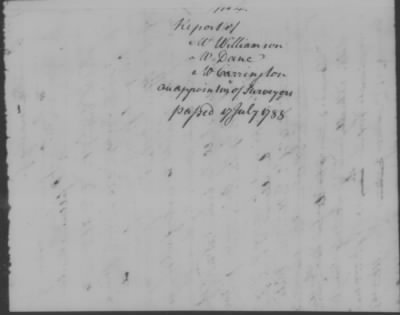 Report of
Mr Williamson
Mr Dane
Mr Carrington
on appointmt of Surveyors
passed 17 July 1788